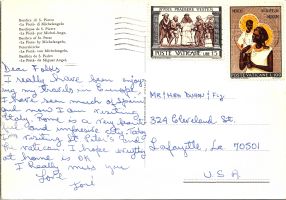 Basilica di S. Pietro
«La Pietà» di Michelangelo
Basilique de S. Pierre
«La Pietà» par Michel-Ange
Basilica of St. Peter
«La Pietà» by Michelangelo
Peterskirche
«La Pietà» von Michelangelo
Basílica de S. Pedro
«La Pietà» de Miguel Angel
POSTE VATICANE
POSTE VATICANE
Dear Folks
I really have been enjoy-
ing my travels in Europe.
I have seen much of Spain
and now I am visiting
Italy. Rome is a very beauti-
ful and impressive city. Today
I'm visiting St Peter's and
the Vatican. I hope everything
at home is OK
I really miss you
Love
Mr/Mrs
324 Cleveland St.
Lafayette, La 70501
U.S.A.